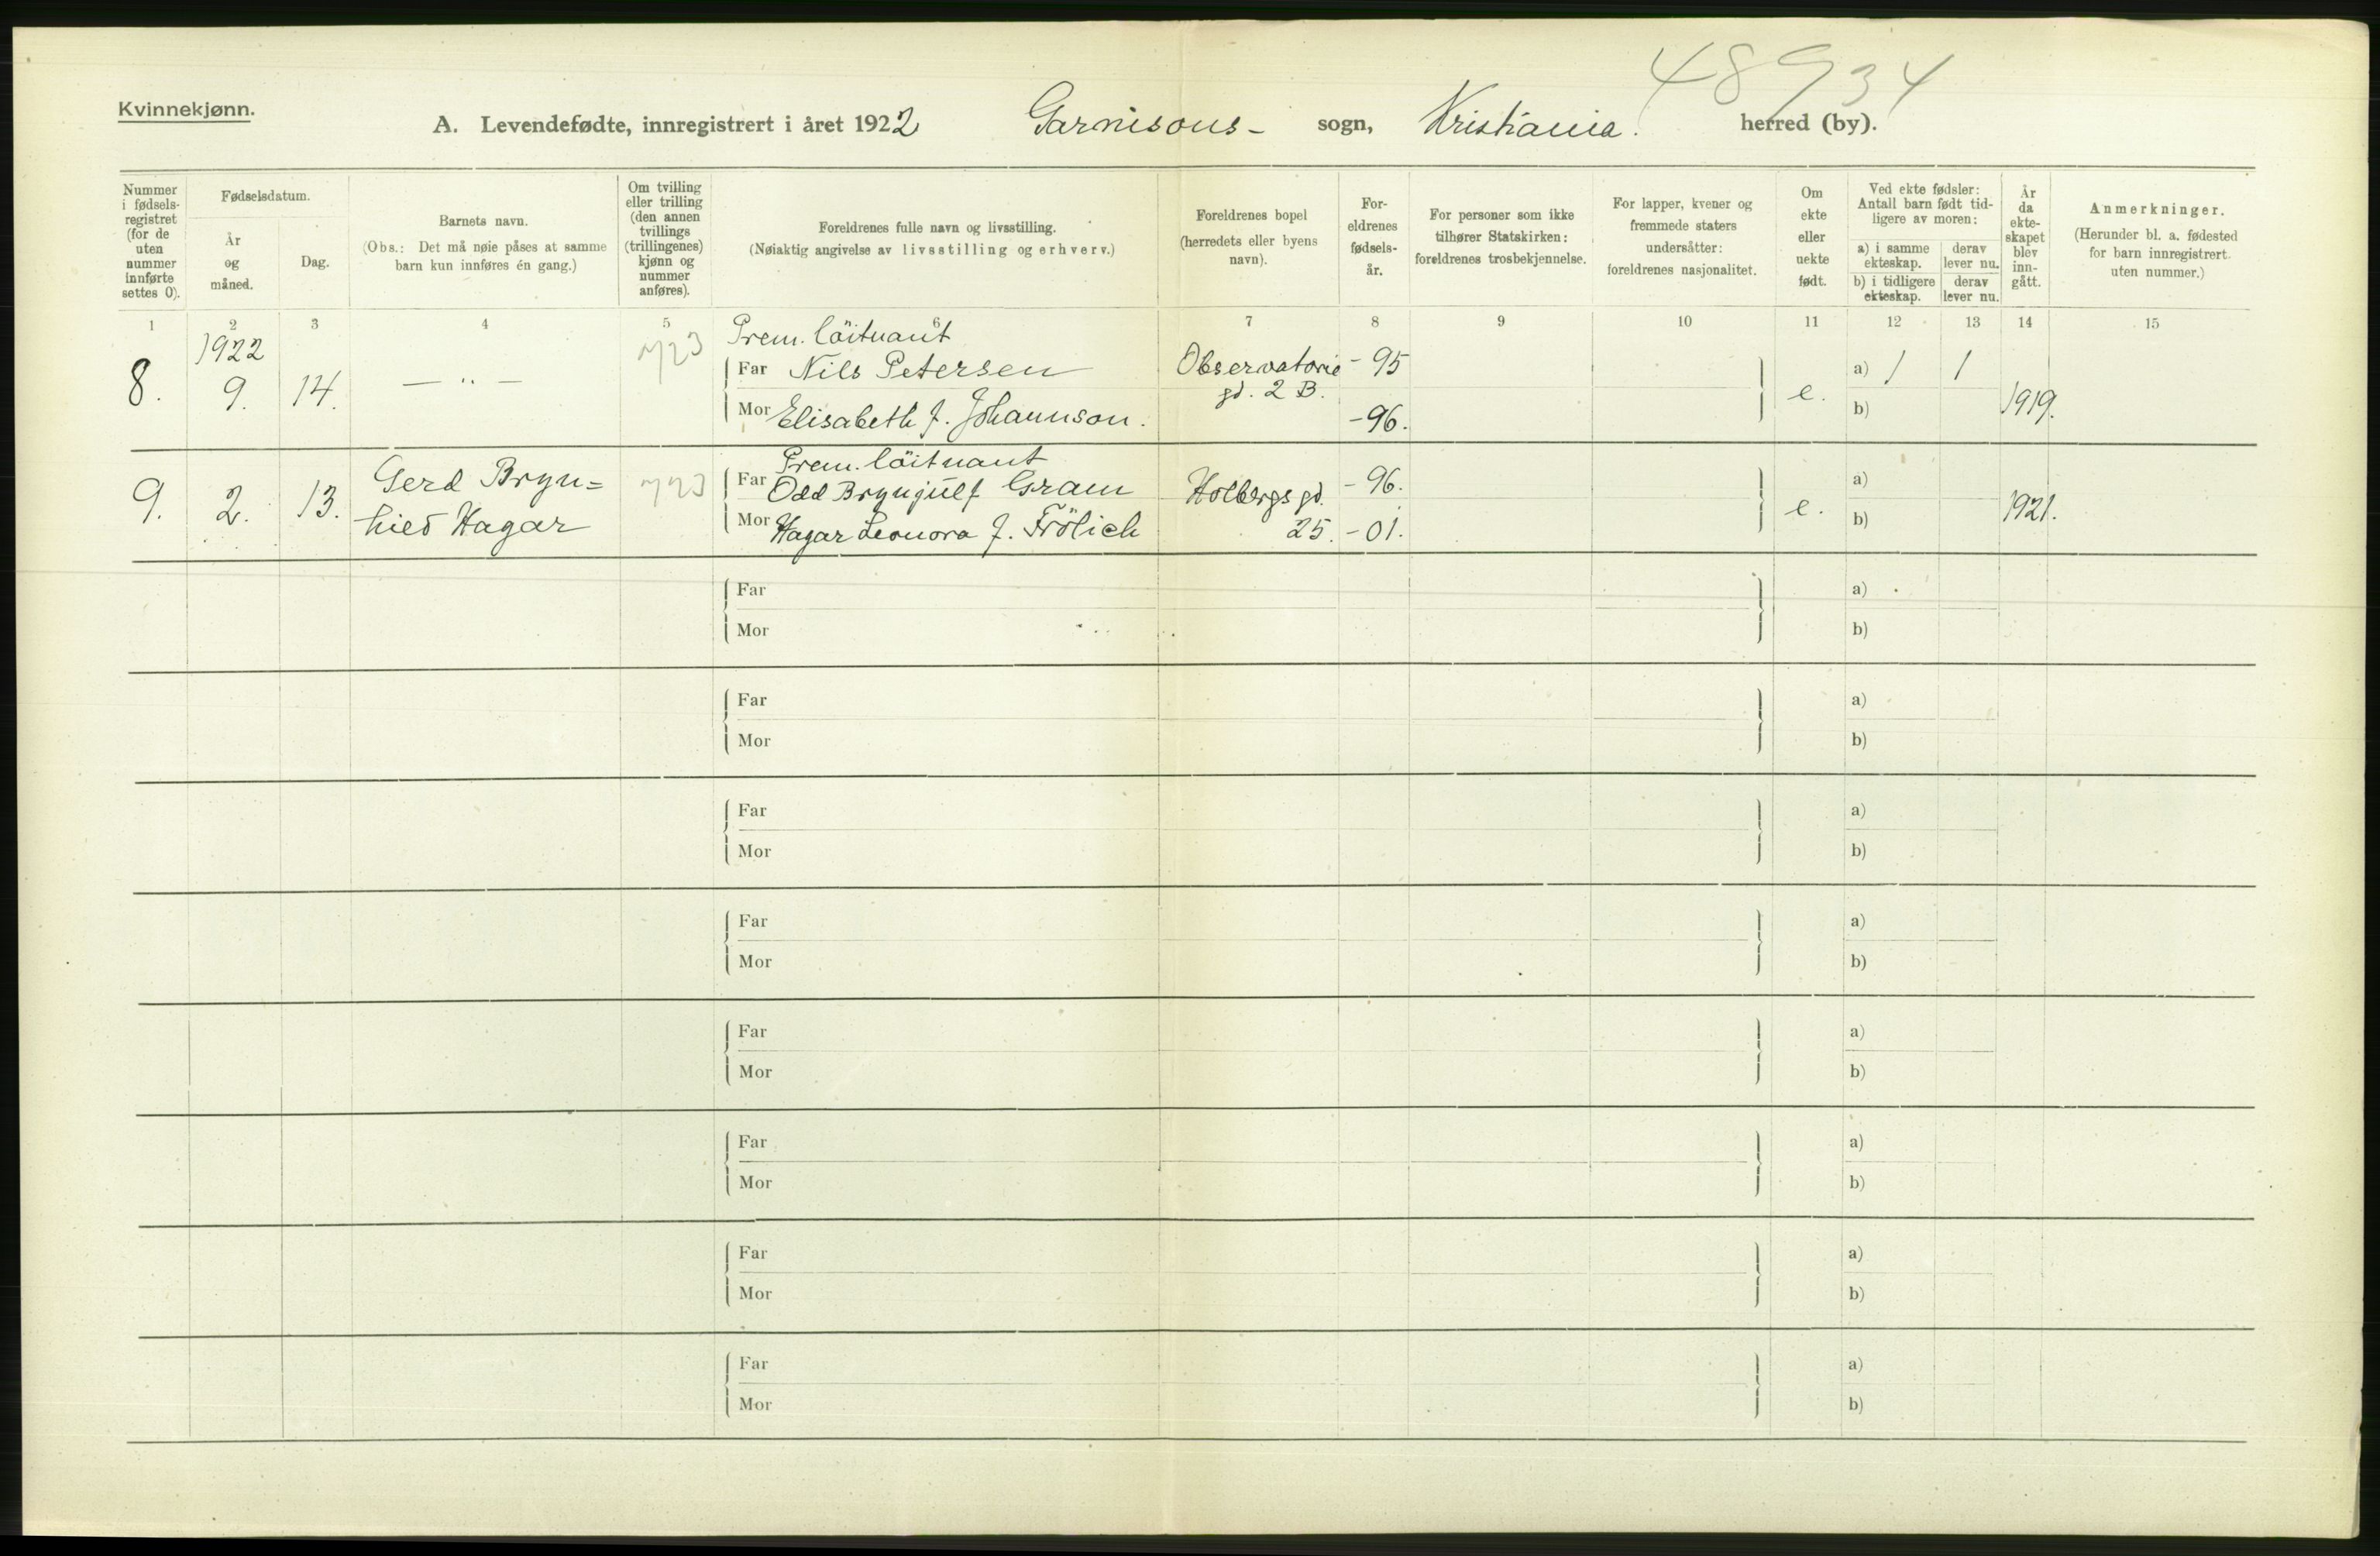 48934
Kvinnekjønn.
A. Levendefødte, innregistrert i året 1922 Garnisons- sogn, Kristiania. herred (by).
Nummer i fødselsregistret (for de uten nummer innførte settes 0).
Fødselsdatum.
År og måned.
Dag.
Barnets navn.
(Obs.: Det må nøie påses at samme barn kun innføres én gang.)
Om tvilling eller trilling (den annen tvillings (trillingenes) kjønn og nummer anføres).
Foreldrenes fulle navn og livsstilling.
(Nøiaktig angivelse av livsstilling og erhverv.)
Foreldrenes bopel (herredets eller byens navn).
Foreldrenes fødselsår.
For personer som ikke tilhører Statskirken: foreldrenes trosbekjennelse.
For lapper, kvener og fremmede staters undersåtter: foreldrenes nasjonalitet.
Om ekte eller uekte født.
Ved ekte fødsler: Antall barn født tidligere av moren:
a) i samme ekteskap. derav lever nu.
b) i tidligere ekteskap. derav lever nu.
År da ekteskapet blev inngått.
Anmerkninger.
(Herunder bl. a. fødested for barn innregistrert uten nummer.)
1 2 3 4 5 6 7 8 9 10 11 12 13 14 15
1922 Prem. löitnant
8. 9. 14. — " — Far Nils Petersen Observatorie - 95 e. a) 1 1
gd. 2 B.
Mor Elisabeth f. Johannson. -96. b) 1919.
Prem. löitnant
9. 2. 13. Gerd Bryn= Far Odd Brynjulf Gram Holbergs gd. - 96. e. a)
hild Hagar Mor Hagar Leonora f. Frölich 25. - 01. b) 1921.
Far a)
Mor b)
Far a)
Mor b)
Far a)
Mor b)
Far a)
Mor b)
Far a)
Mor b)
Far a)
Mor b)
Far a)
Mor b)
Far a)
Mor b)